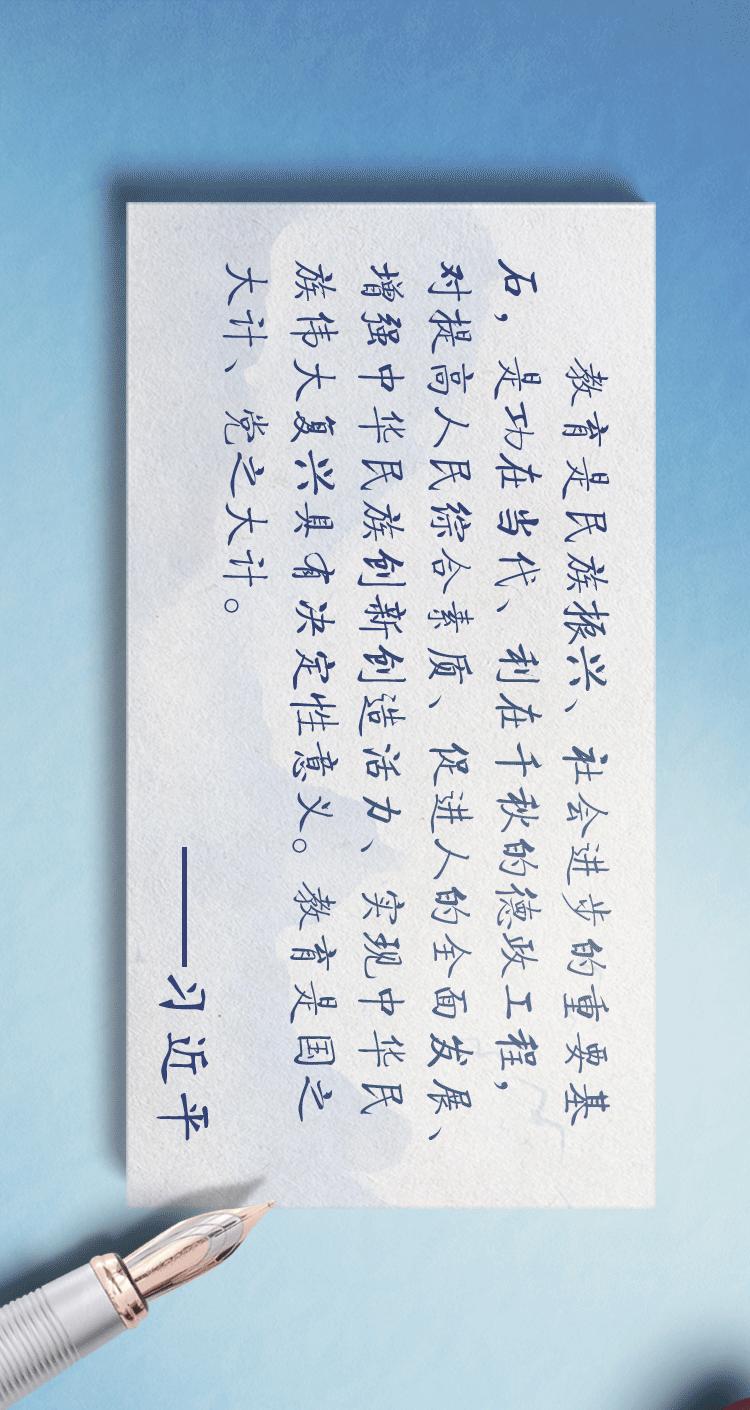 教育是民族振兴、社会进步的重要基
石，是功在当代、利在千秋的德政工程，
对提高人民综合素质、促进人的全面发展、
增强中华民族创新创造活力、实现中华民
族伟大复兴具有决定性意义。教育是国之
大计、党之大计。
——习近平